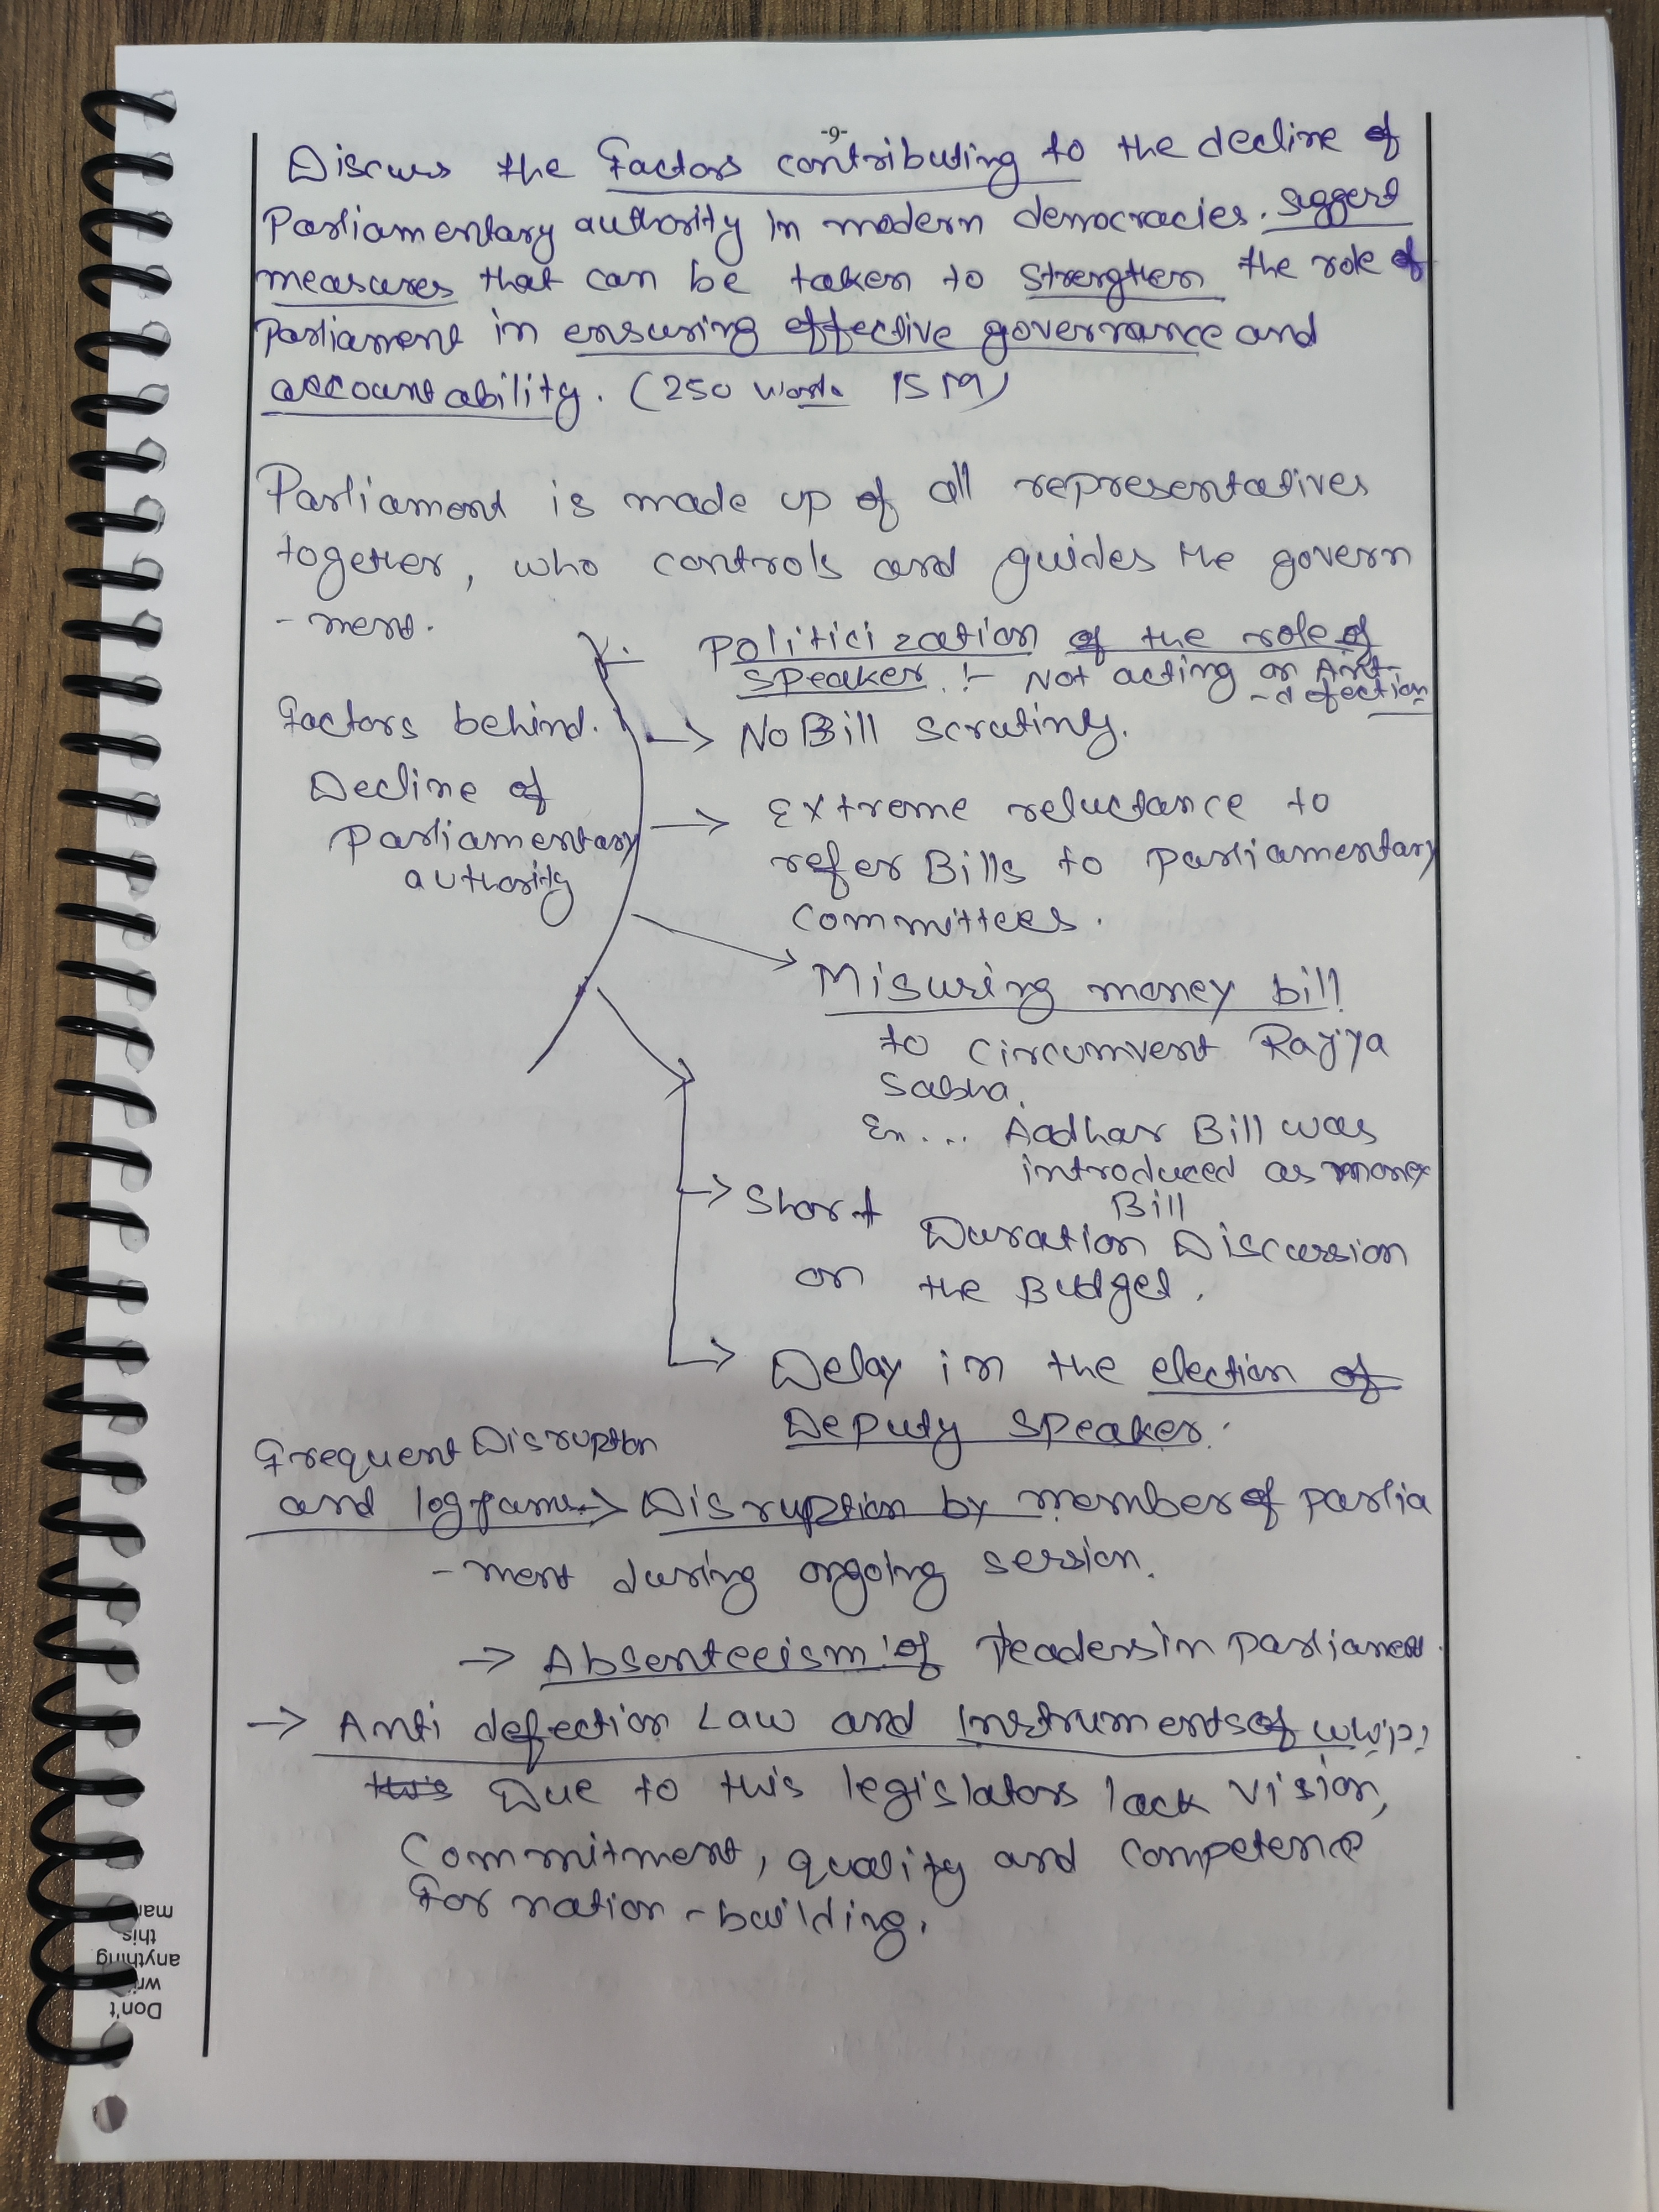 -9-
Discuss the factors contributing to the decline of
Parliamentary authority in modern democracies. suggest
measures that can be taken to strengthen the role of
Parliament in ensuring effective governance and
accountability. (250 words 15 M)
Parliament is made up of all representatives
together, who controls and guides the govern
-ment.
Factors behind.
Decline of
Parliamentary
authority
Politicization of the role of
speaker :- Not acting on Anti-
-defection
→ No Bill scrutiny.
→ Extreme reluctance to
refer Bills to parliamentary
committees.
→ Misusing money bill
to circumvent Rajya
Sabha.
Ex... Aadhar Bill was
introduced as money
Bill
→ Short Duration Discussion
on the Budget.
→ Delay in the election of
Deputy speaker.
Frequent Disruption
and logjams → Disruption by member of parlia
-ment during ongoing session.
→ Absenteeism of leaders in parliament.
→ Anti defection Law and Instruments of whip:
this Due to this legislators lack vision,
Commitment, quality and competence
for nation-building.
Don't
write
anything
this
mar